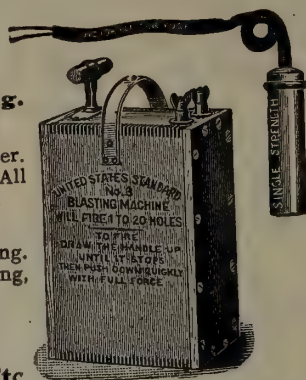 g.
er.
All
UNITED STATES STANDARD
No. 3
BLASTING MACHINE
WILL FIRE 1 TO 20 HOLES
TO FIRE
DRAW THE HANDLE UP
UNTIL IT STOPS
THEN PUSH DOWN QUICKLY
WITH FULL FORCE
SINGLE STRENGTH
ng.
ng,
Etc